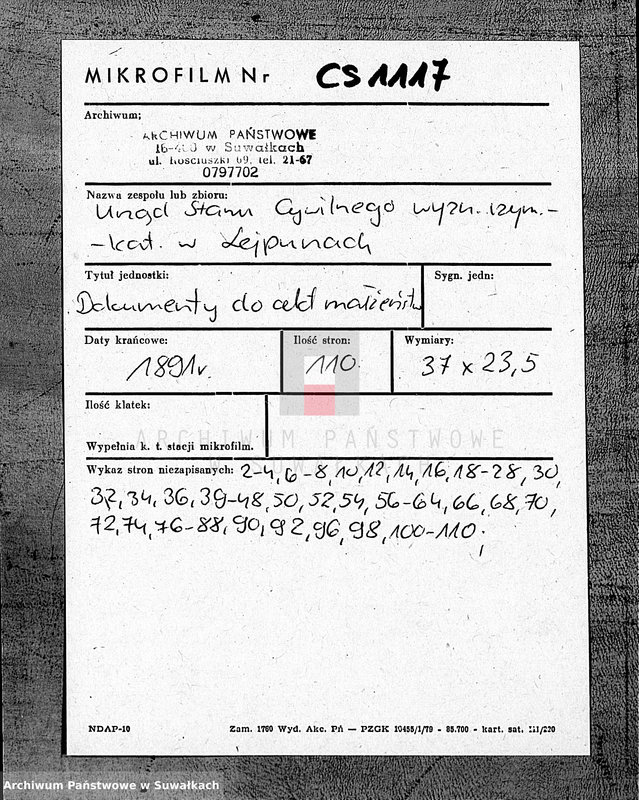 MIKROFILM Nr CS 1117
Archiwum;
ARCHIWUM PAŃSTWOWE
16-400 w Suwałkach
ul. Kościuszki 69, tel. 21-67
0797702
Nazwa zespołu lub zbioru:
Urząd Stanu Cywilnego wyzn. rzym.-
-kat. w Lejpunach
Tytuł jednostki: Sygn. jedn:
Dokumenty do akt małżeństw
Daty krańcowe: Ilość stron: Wymiary:
1891r. 110 37 x 23,5
Ilość klatek:
ARCHIWUM PAŃSTWOWE
Wypełnia k. t. stacji mikrofilm.
W SUWAŁKACH
Wykaz stron niezapisanych: 2-4, 6-8, 10, 12, 14, 16, 18-28, 30,
32, 34, 36, 39-48, 50, 52, 54, 56-64, 66, 68, 70,
72, 74, 76-88, 90, 92, 96, 98, 100-110;
NDAP-10 Zam. 1760 Wyd. Akc. Pń — PZGK 10455/1/79 - 85.700 - kart. sat. III/220
Archiwum Państwowe w Suwałkach